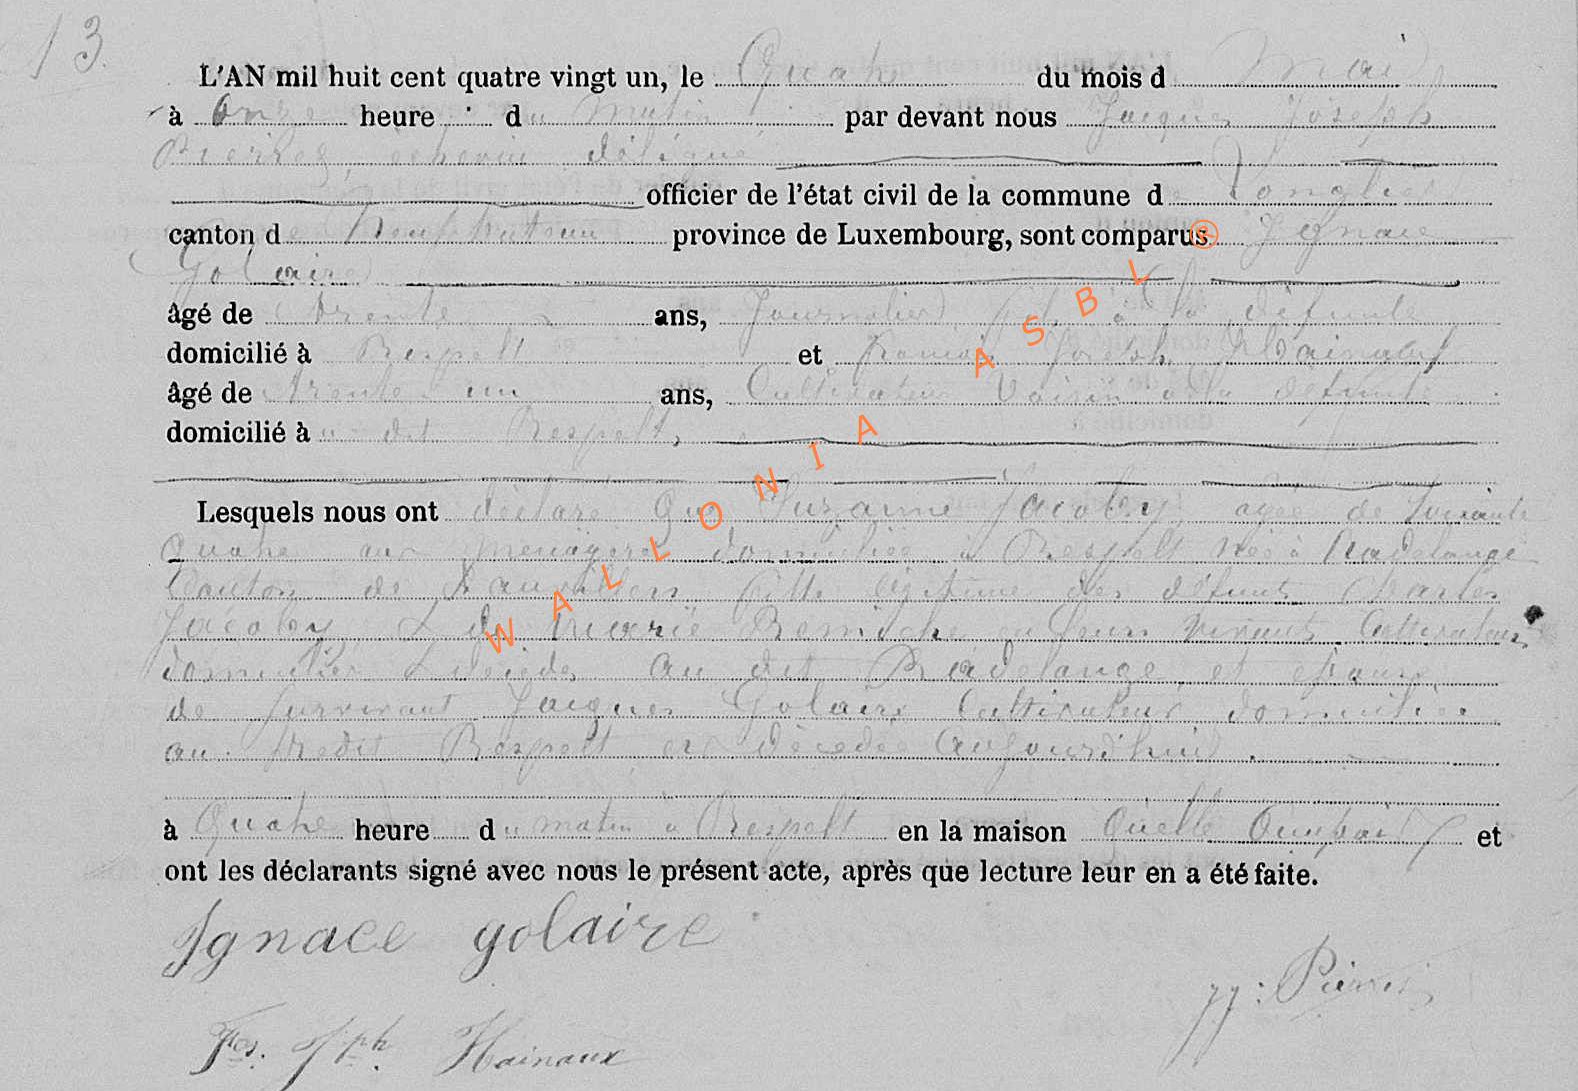 13.
L'AN mil huit cent quatre vingt un, le Quatre du mois d Mai
à Onze heure d u Matin par devant nous Jacques Joseph
Pierret échevin délégué
officier de l'état civil de la commune d e Longlier
canton d e Neufchateau province de Luxembourg, sont comparus Ignace
Golaire
âgé de trente ans, Journalier fils à la défunte
domicilié à Respelt et François Joseph Hainaux
âgé de trente un ans, Cultivateur Voisin à la défunte
domicilié à u dit Respelt,
Lesquels nous ont déclaré Que Suzanne Jacoby agée de Soixante
Quatre ans menagere domiciliée à Respelt née à Radelange
Canton de Fauvillers fille légitime des défunts Charles
Jacoby & de Marie Remiche en leurs vivants Cultivateurs
domiciliés & décédés au dit Radelange, et épouse
de survivant Jacques Golaire Cultivateur domicilié
au predit Respelt est décedée aujourd'hui
à Quatre heure d u matin à Respelt en la maison Qu'elle Occupait et
ont les déclarants signé avec nous le présent acte, après que lecture leur en a été faite.
Ignace golaire
JJ: Pierret
Fçs. Jph. Hainaux
WALLONIA ASBL ®